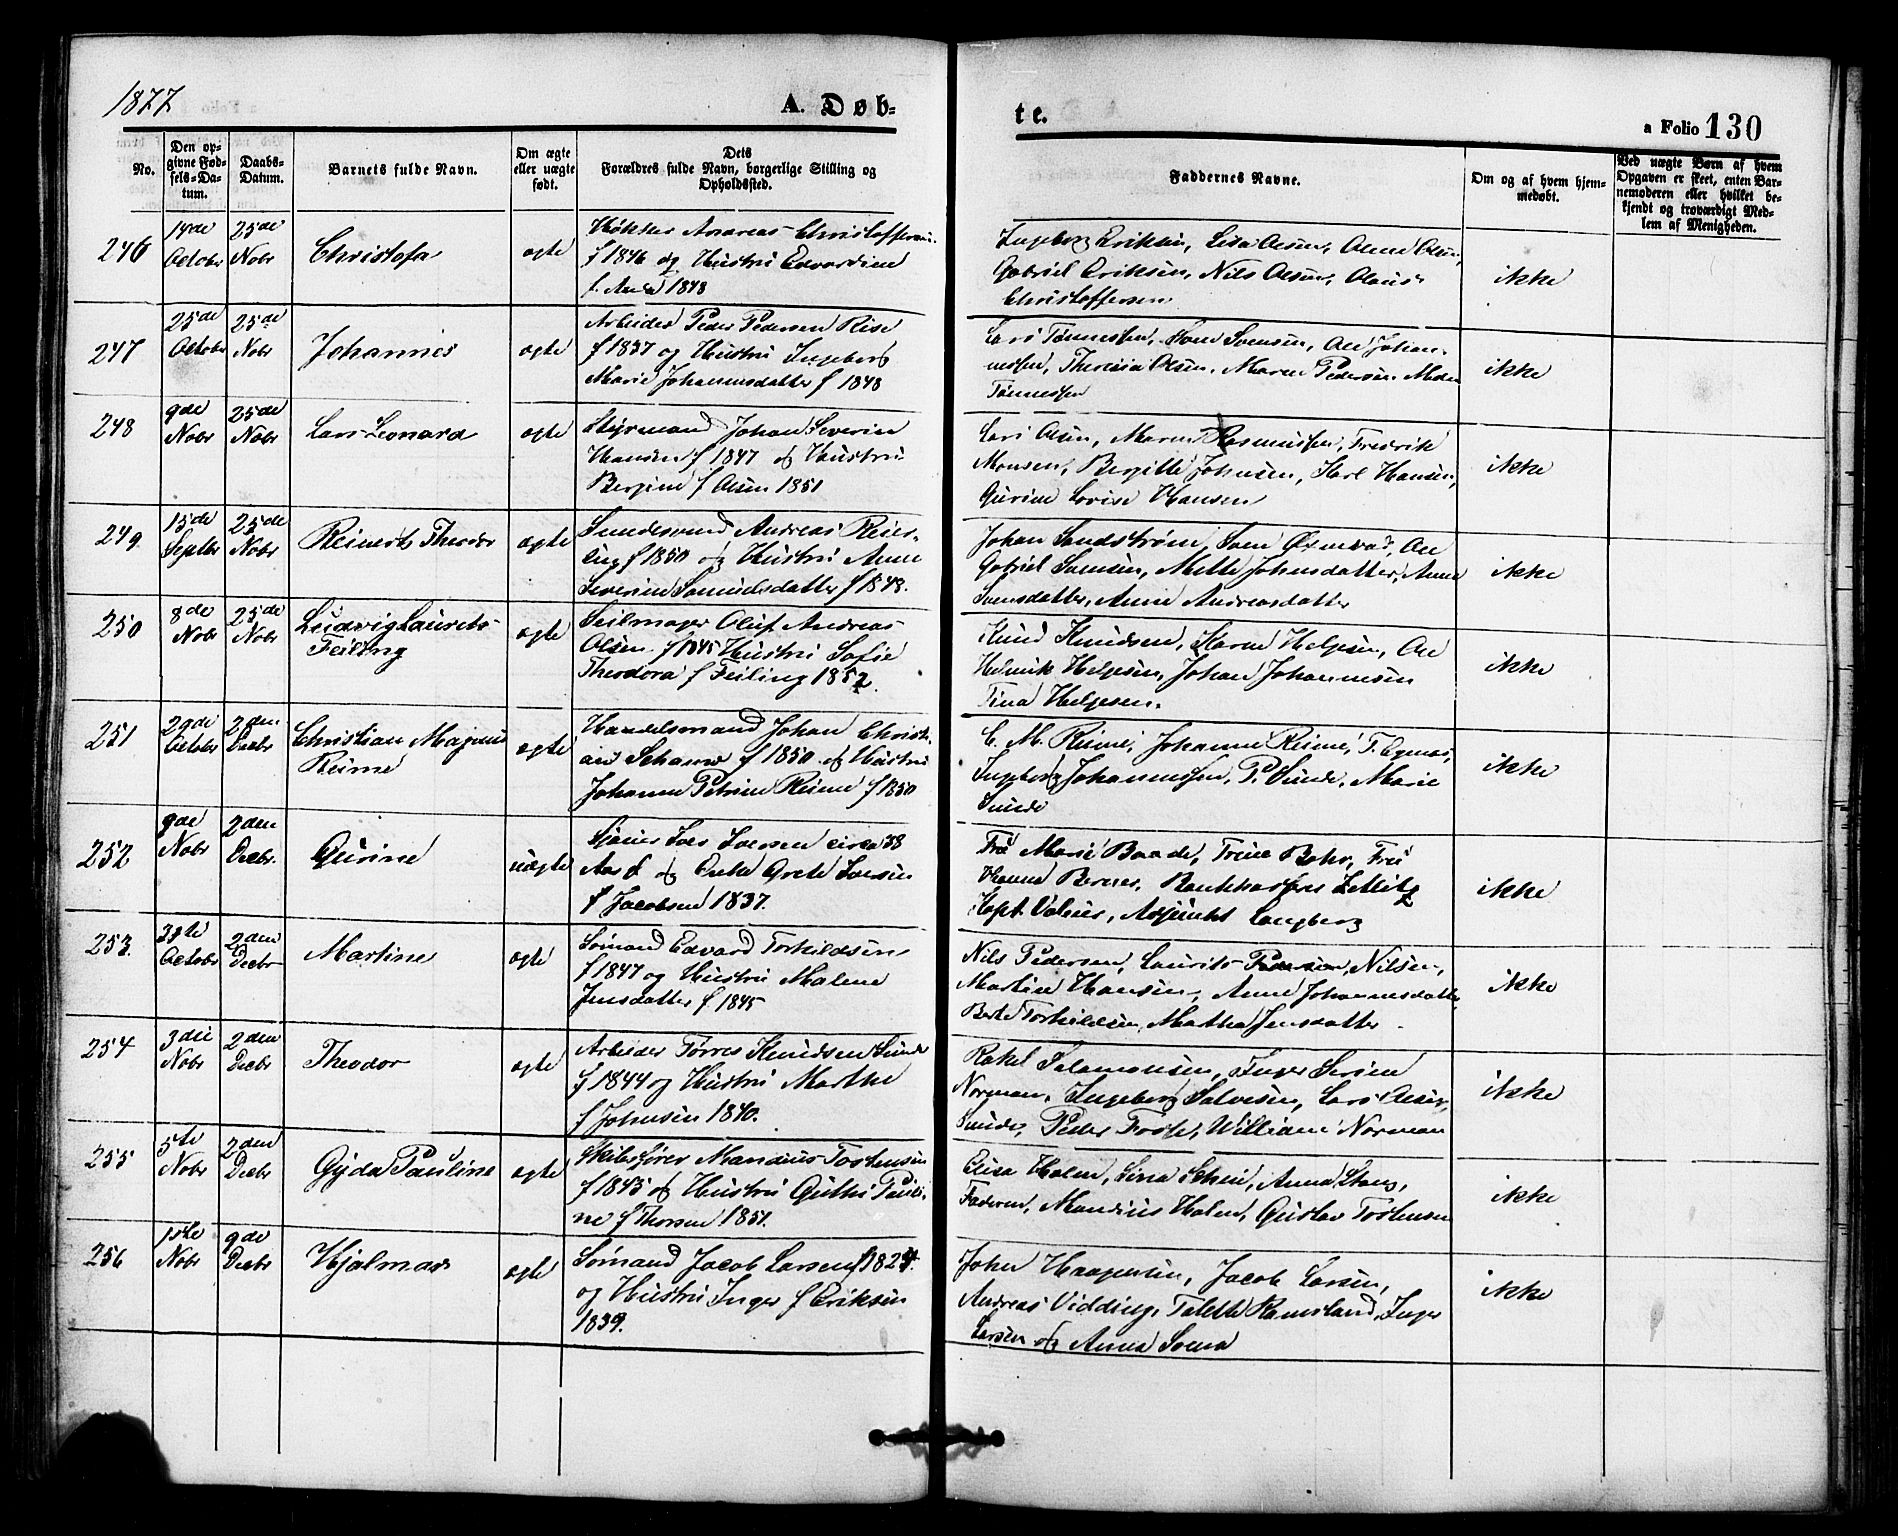 1877
A. Døb-
te.
a Folio 130
No.
Den op-
givne Fød-
sels-Da-
tum.
Daabs-
Datum.
Barnets fulde Navn.
Om ægte
eller uægte
født.
Dets
Forældres fulde Navn, borgerlige Stilling og
Opholdssted.
Faddernes Navne.
Om og af hvem hjem-
medøbt.
Ved uægte Børn af hvem
Opgaven er skeet, enten Bar-
nemoderen eller hvilket be-
kjendt og troværdigt Med-
lem af Menigheden.
246
14de
October
25de
Nobr
Christofa
ægte
Høkker Andreas Christoffersen
f 1846 og Hustru Edvardine
f. 1848
Ingeborg Eriksen, Lisa Olsen, Olsen,
Gabriel Eriksen, Nils Olsen, Olaus
Christoffersen
ikke
247
25de
October
25de
Nobr
Johannes
ægte
Arbeider Peder Pedersen Rise
f 1837 og Hustru Ingeborg
Marie Johannesdatter f 1848
Lars Tønnessen, Sven Svensen, Ole Johan-
nessen, Theresia Olsen, Maren Pedersen,
Tønnessen
ikke
248
9de
Nobr
25de
Nobr
Lars Leonard
ægte
Styrmand Johan Severin
Hansen f 1847 og Hustru
Bergine f Olsen 1851
Lars Olsen, Maren Rasmussen, Fredrik
Monsen, Bergitte Johnsen, Karl Hansen,
Gurine Lovise Hansen
ikke
249
15de
Septbr
25de
Nobr
Reinert Theodor
ægte
Andreas Reier-
sen f 1850 og Hustru Anne
Severine Samuelsdatter f 1848.
Johan Sandstrøm, Sven Ole
Gabriel Svensen, Mette Johnsdatter, Anne
Svensdatter, Anne Andreasdatter
ikke
250
8de
Nobr
25de
Nobr
Ludvig Laurits
Feiling
ægte
Seilmager Oluf Andreas
Olsen f 1845 Hustru Sofie
Theodora f Feiling 1852.
Knud Knudsen, Karen Helgesen, Ole
Henrik Helgesen, Johan Johannesen
Tina Helgesen.
ikke
251
29de
Octobr
2den
Decbr
Christian Magnus
Reime
ægte
Handelsmand Johan Christi-
an f 1850 og Hustru
Johanne Petrine Reime f 1850
C. M. Reime, Johanne Reime, T.
Ingeborg Johannessen, P. Sunde, Marie
Sunde
ikke
252
9de
Nobr
2den
Decbr.
Gurine
uægte
Iver Iversen circa 38
Aar og Enke Grete Iversen
f Jacobsen 1837.
Fru Marie Baade, Trine Bohr, Fru
Hanne Berner, Bankkasserer Zetlitz
Kapt. Valeur, Adjunkt Langberg
ikke
253.
October
2den
Decbr
Martine
ægte
Sømand Edvard Torkildsen
f 1847 og Hustru Malene
Jensdatter f 1845
Nils Pedersen, Laurits Nilsen,
Martine Hansen, Anne Johannesdatter
Berte Torkildsen, Martha Jensdatter
ikke
254
3die
Nobr
2den
Decbr
Theodor
ægte
Arbeider Tørres Knudsen Sunde
f 1844 og Hustru Marthe
f Johnsen 1840.
Rakel Salamonsen, Inger Serine
Norman, Ingeborg Salvesen, Lars Olsen,
Sunde, Peder William Norman
ikke
255
5te
Nobr
2den
Decbr
Gyda Pauline
ægte
Skibsfører Mandius Tostensen
f 1845 og Hustru Guthe Pauli-
ne f Thorsen 1851.
Elisa Holm, Lina Anna Stang,
Faderen, Mandius Holm, Gustav Tostensen
ikke
256
1ste
Nobr
9de
Decbr
Hjalmar
ægte
Sømand Jacob Larsen f 1824.
og Hustru Inger f Eriksen
1839.
John Haagensen, Jacob Larsen,
Andreas Vidding, Talette Ramsland, Inger
Larsen og Anna
ikke